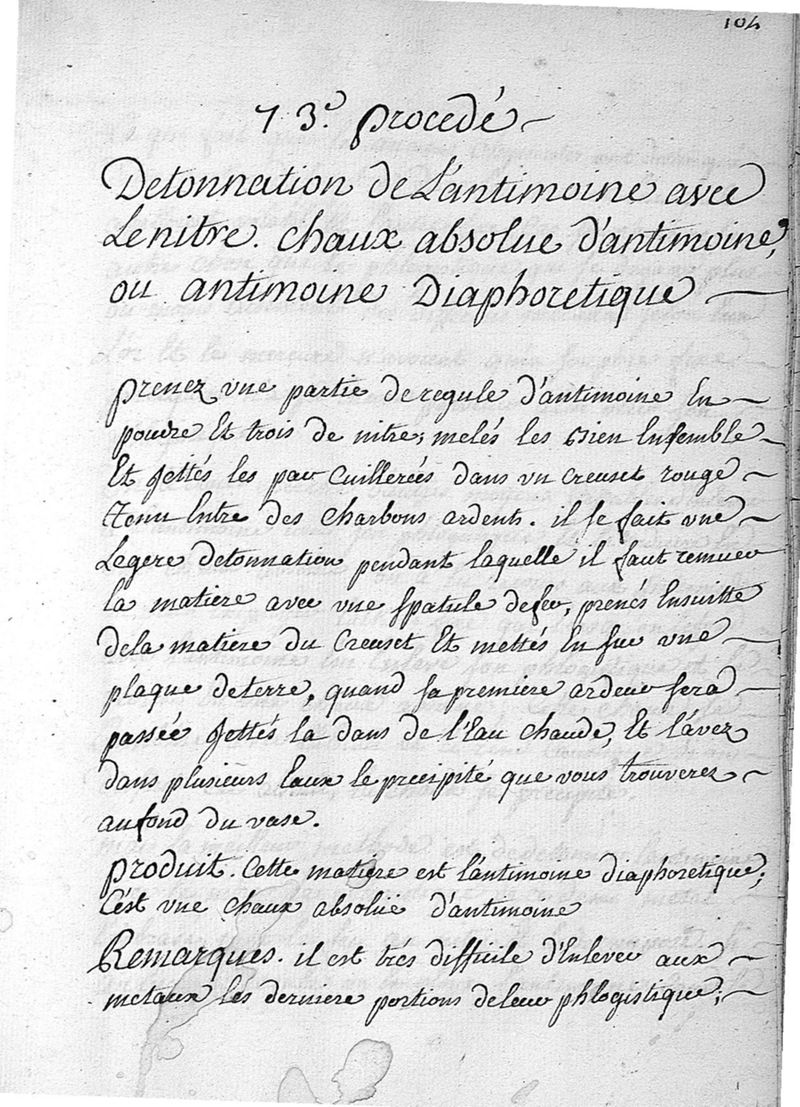 104
73e. procedé
Detonnation de L'antimoine avec
Le nitre. chaux absolue d'antimoine,
ou antimoine Diaphoretique
prenez vne partie de regule d'antimoine En
poudre Et trois de nitre, melés les bien Ensemble
Et jettés les par Cuillereés dans vn creuset rouge
tenu Entre des charbons ardents. il se fait vne
Legere detonnation pendant laquelle il faut remuer
la matiere avec vne spatule de fer, prenés Ensuitte
de la matiere du Creuset Et mettés En sur vne
plaque de terre, quand sa premiere ardeur sera
passée jettés la dans de l'Eau chaude, Et lavez
dans plusieurs Eaux le precipité que vous trouverez
au fond du vase.
produit. Cette matiere est l'antimoine diaphoretique,
C'est vne chaux absolüe d'antimoine
Remarques. il est trés difficile d'Enlever aux
metaux les derniere portions de leur phlogistique;